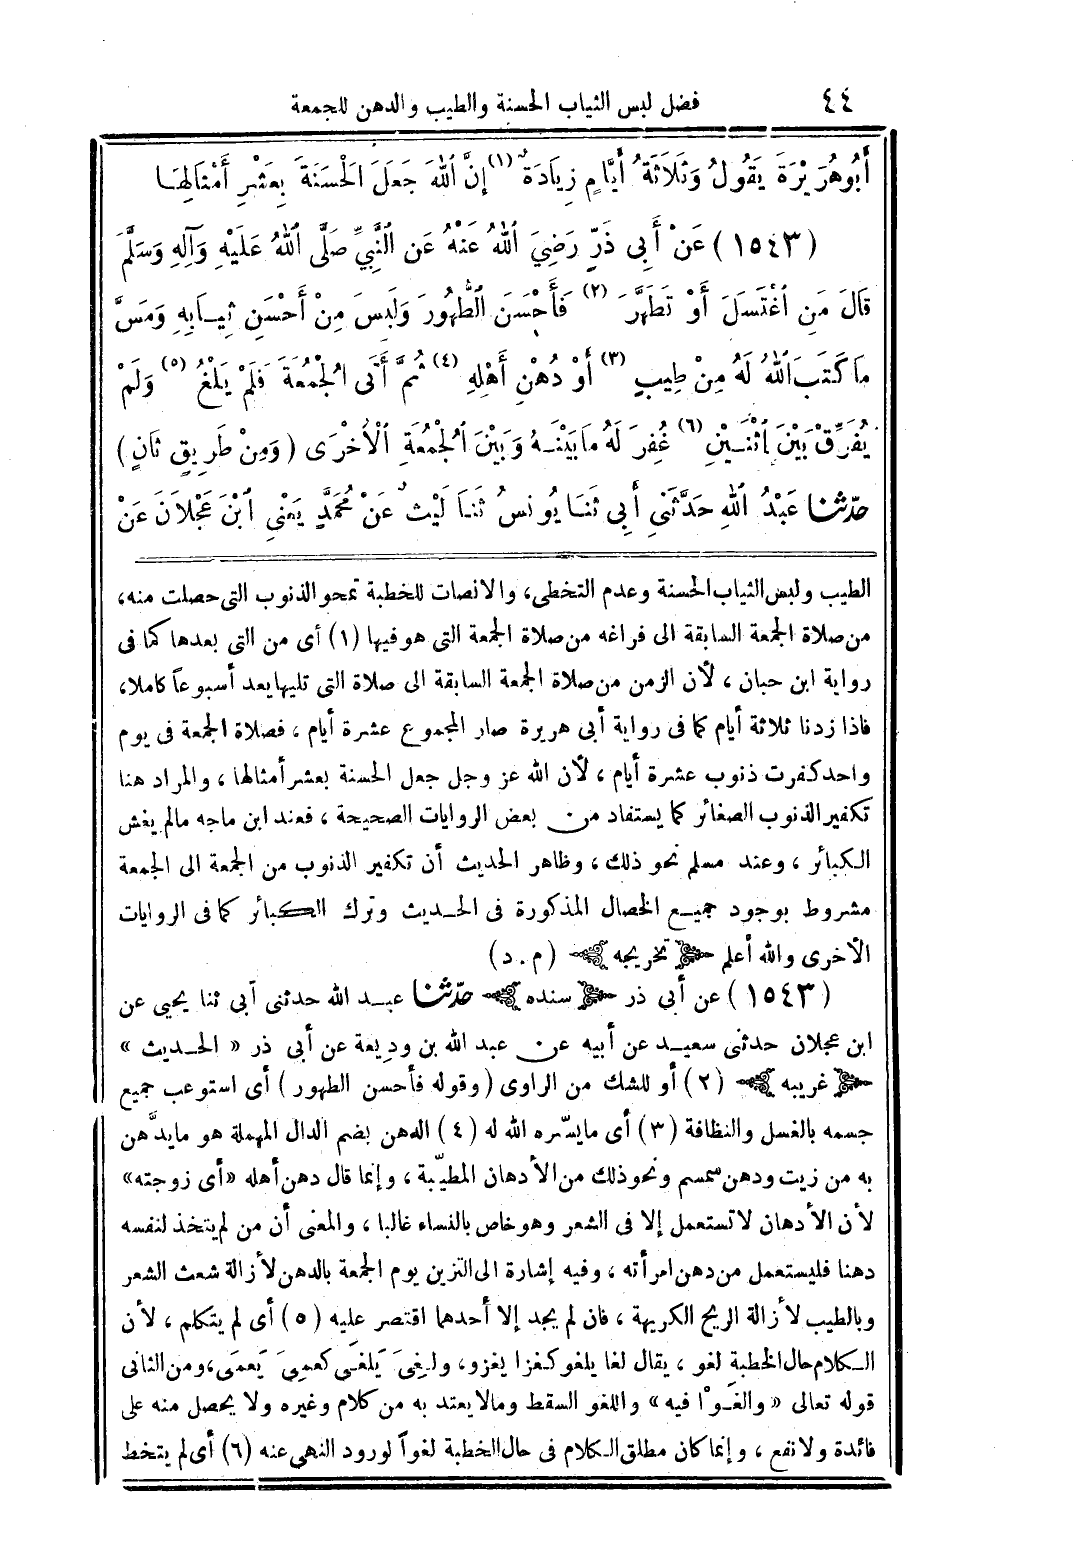 ٤٤ فضل لبس الثياب الحسنة والطيب والدهن للجمعة
أَبُو هُرَيْرَةَ يَقُولُ وَثَلَاثَةُ أَيَّامٍ زِيَادَةٌ (١) إِنَّ اللهَ جَعَلَ الْحَسَنَةَ بِعَشْرِ أَمْثَالِهَا
(١٥٤٣) عَنْ أَبِى ذَرٍّ رَضِيَ اللهُ عَنْهُ عَنِ النَّبِيِّ صَلَّى اللهُ عَلَيْهِ وَآلِهِ وَسَلَّمَ
قَالَ مَنِ اغْتَسَلَ أَوْ تَطَهَّرَ (٢) فَأَحْسَنَ الطُّهُورَ وَلَبِسَ مِنْ أَحْسَنِ ثِيَابِهِ وَمَسَّ
مَا كَتَبَ اللهُ لَهُ مِنْ طِيبٍ (٣) أَوْ دُهْنِ أَهْلِهِ (٤) ثُمَّ أَتَى الْجُمُعَةَ فَلَمْ يَلْغُ (٥) وَلَمْ
يُفَرِّقْ بَيْنَ اثْنَيْنِ (٦) غُفِرَ لَهُ مَا بَيْنَهُ وَبَيْنَ الْجُمُعَةِ الْأُخْرَى (وَمِنْ طَرِيقٍ ثَانٍ)
حَدَّثَنَا عَبْدُ اللهِ حَدَّثَنِى أَبِى ثَنَا يُونُسُ ثَنَا لَيْثٌ عَنْ مُحَمَّدٍ يَعْنِى ابْنَ عَجْلَانَ عَنْ
الطيب ولبس الثياب الحسنة وعدم التخطى، والانصات للخطبة تمحو الذنوب التى حصلت منه،
من صلاة الجمعة السابقة الى فراغه من صلاة الجمعة التى هو فيها (١) أى من التى بعدها كما فى
رواية ابن حبان ، لأن الزمن من صلاة الجمعة السابقة الى صلاة التى تليها يعد أسبوعاً كاملا،
فاذا زدنا ثلاثة أيام كما فى رواية أبى هريرة صار المجموع عشرة أيام ، فصلاة الجمعة فى يوم
واحد كفرت ذنوب عشرة أيام ، لأن الله عز وجل جعل الحسنة بعشر أمثالها ، والمراد هنا
تكفير الذنوب الصغائر كما يستفاد من بعض الروايات الصحيحة ، فعند ابن ماجه مالم يغش
الكبائر ، وعند مسلم نحو ذلك ، وظاهر الحديث أن تكفير الذنوب من الجمعة الى الجمعة
مشروط بوجود جميع الخصال المذكورة فى الحديث وترك الكبائر كما فى الروايات
الأخرى والله أعلم ﴿ تخريجه ﴾ (م . د)
(١٥٤٣) عن أبى ذر ﴿ سنده ﴾ حدثنا عبد الله حدثنى أبى ثنا يحيى عن
ابن عجلان حدثنى سعيد عن أبيه عن عبد الله بن وديعة عن أبى ذر « الحديث »
﴿ غريبه ﴾ (٢) أو للشك من الراوى (وقوله فأحسن الطهور) أى استوعب جميع
جسمه بالغسل والنظافة (٣) أى مايسّره الله له (٤) الدهن بضم الدال المهملة هو مايدَّهن
به من زيت ودهن سمسم ونحو ذلك من الأدهان المطيّبة ، وإنما قال دهن أهله «أى زوجته»
لأن الأدهان لاتستعمل إلا فى الشعر وهو خاص بالنساء غالبا ، والمعنى أن من لم يتخذ لنفسه
دهنا فليستعمل من دهن امرأته ، وفيه إشارة الى التزين يوم الجمعة بالدهن لأزالة شعث الشعر
وبالطيب لأزالة الريح الكريهة ، فان لم يجد إلا أحدهما اقتصر عليه (٥) أى لم يتكلم ، لأن
الكلام حال الخطبة لغو ، يقال لغا يلغو كغزا يغزو، ولغِىَ يَلغَى كعمِىَ يَعمَى، ومن الثانى
قوله تعالى « والغَوْا فيه » واللغو السقط ومالا يعتد به من كلام وغيره ولا يحصل منه على
فائدة ولا نفع ، وإنما كان مطلق الكلام فى حال الخطبة لغواً لورود النهى عنه (٦) أى لم يتخط